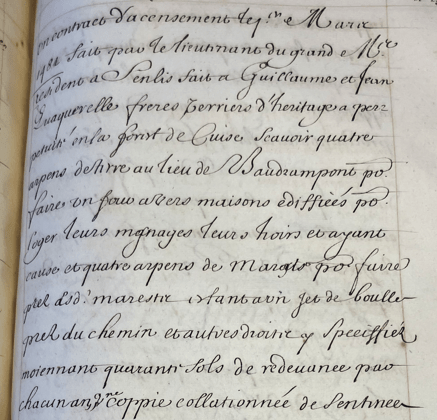 un contract d'acensement le p.er de Mars
1482 fait par le lieutenant du grand e M.re
résident a Senlis fait a Guillaume et Jean
Guaquerelle freres verriers d'heritage a per=
petuité en la forest de Cuise scavoir quatre
arpens de terre au lieu de Baudrampont po.
faire un four a vers maisons ediffiées po.
loger leurs mesnages leurs hoirs et ayant
cause et quatre arpens de po.r faire
prez aud.t marestz estant a un jet de boulle
prez du chemin et autres droits y speciffiés
moiennant quarante sols de redevance par
chacun an, coppie collationnée de sentence